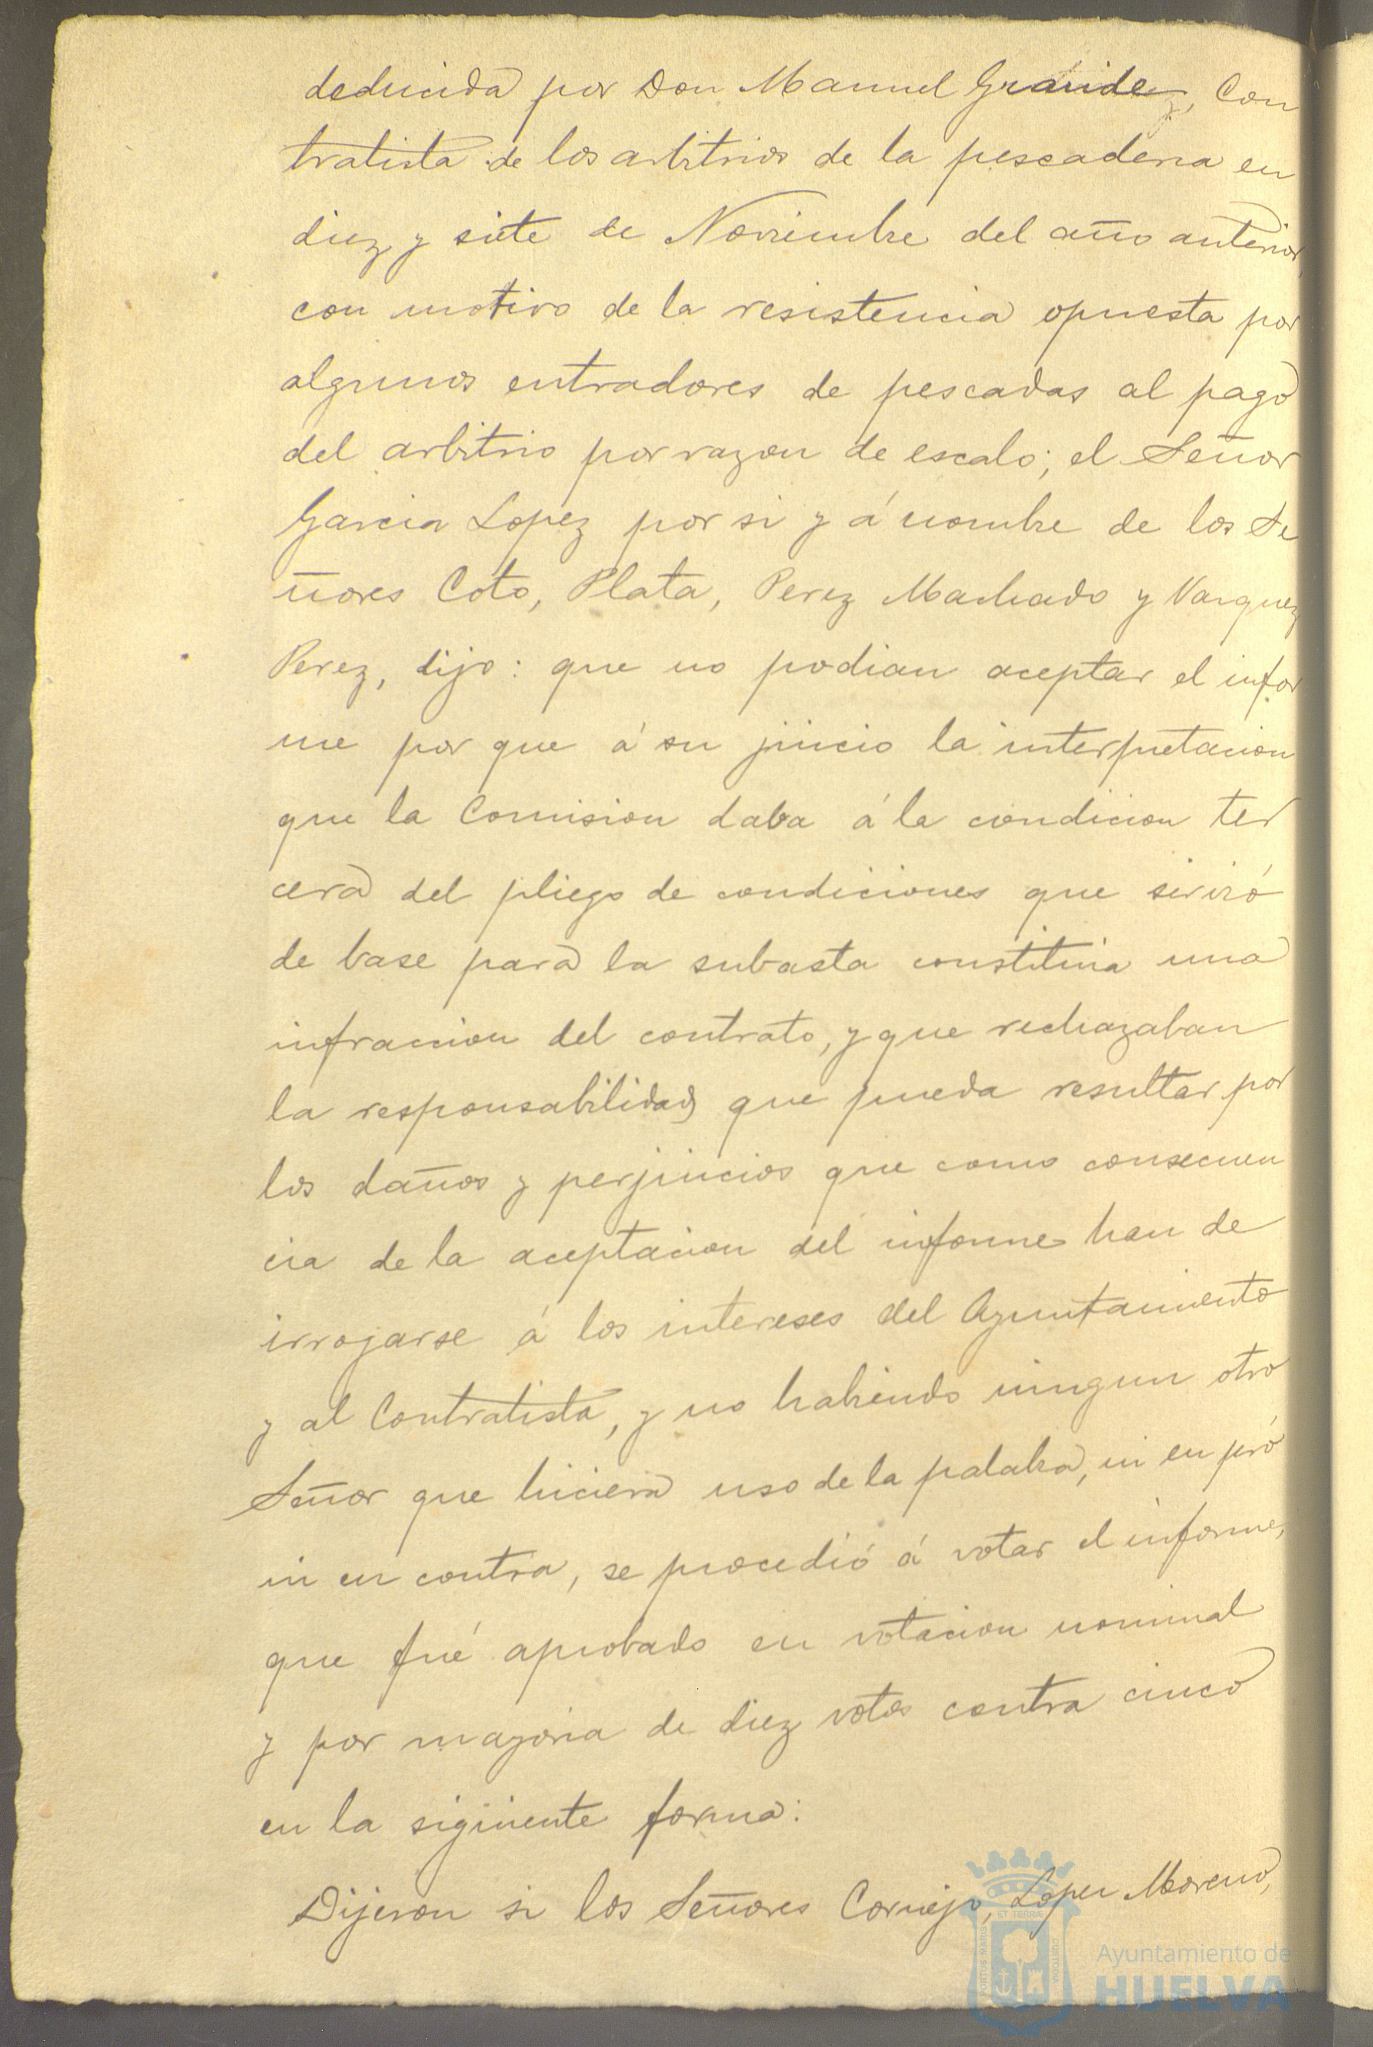 deducida por Don Manuel Grande, Con
tratista de los arbitrios de la pescaderia en
diez y siete de Noviembre del año anterior,
con motivo de la resistencia opuesta por
algunos entradores de pescadas al pago
del arbitrio por razon de escalo; el Señor
Garcia Lopez por si y á nombre de los Se
ñores Coto, Plata, Perez Machado y Vazquez
Perez, dijo: que no podian aceptar el infor
me por que á su juicio la interpretacion
que la Comision daba á la condicion ter
cera del pliego de condiciones que sirvió
de base para la subasta constituia una
infraccion del contrato, y que rechazaban
la responsabilidad que pueda resultar por
los daños y perjuicios que como consecuen
cia de la aceptacion del informe han de
irrogarse á los intereses del Ayuntamiento
y al Contratista, y no habiendo ningun otro
Señor que hiciera uso de la palabra, ni en pró
ni en contra, se procedió á votar el informe,
que fué aprobado en votacion nominal
y por mayoria de diez votos contra cinco
en la siguiente forma:
Dijeron si los Señores Cornejo, Lopez Moreno,
Ayuntamiento de
HUELVA